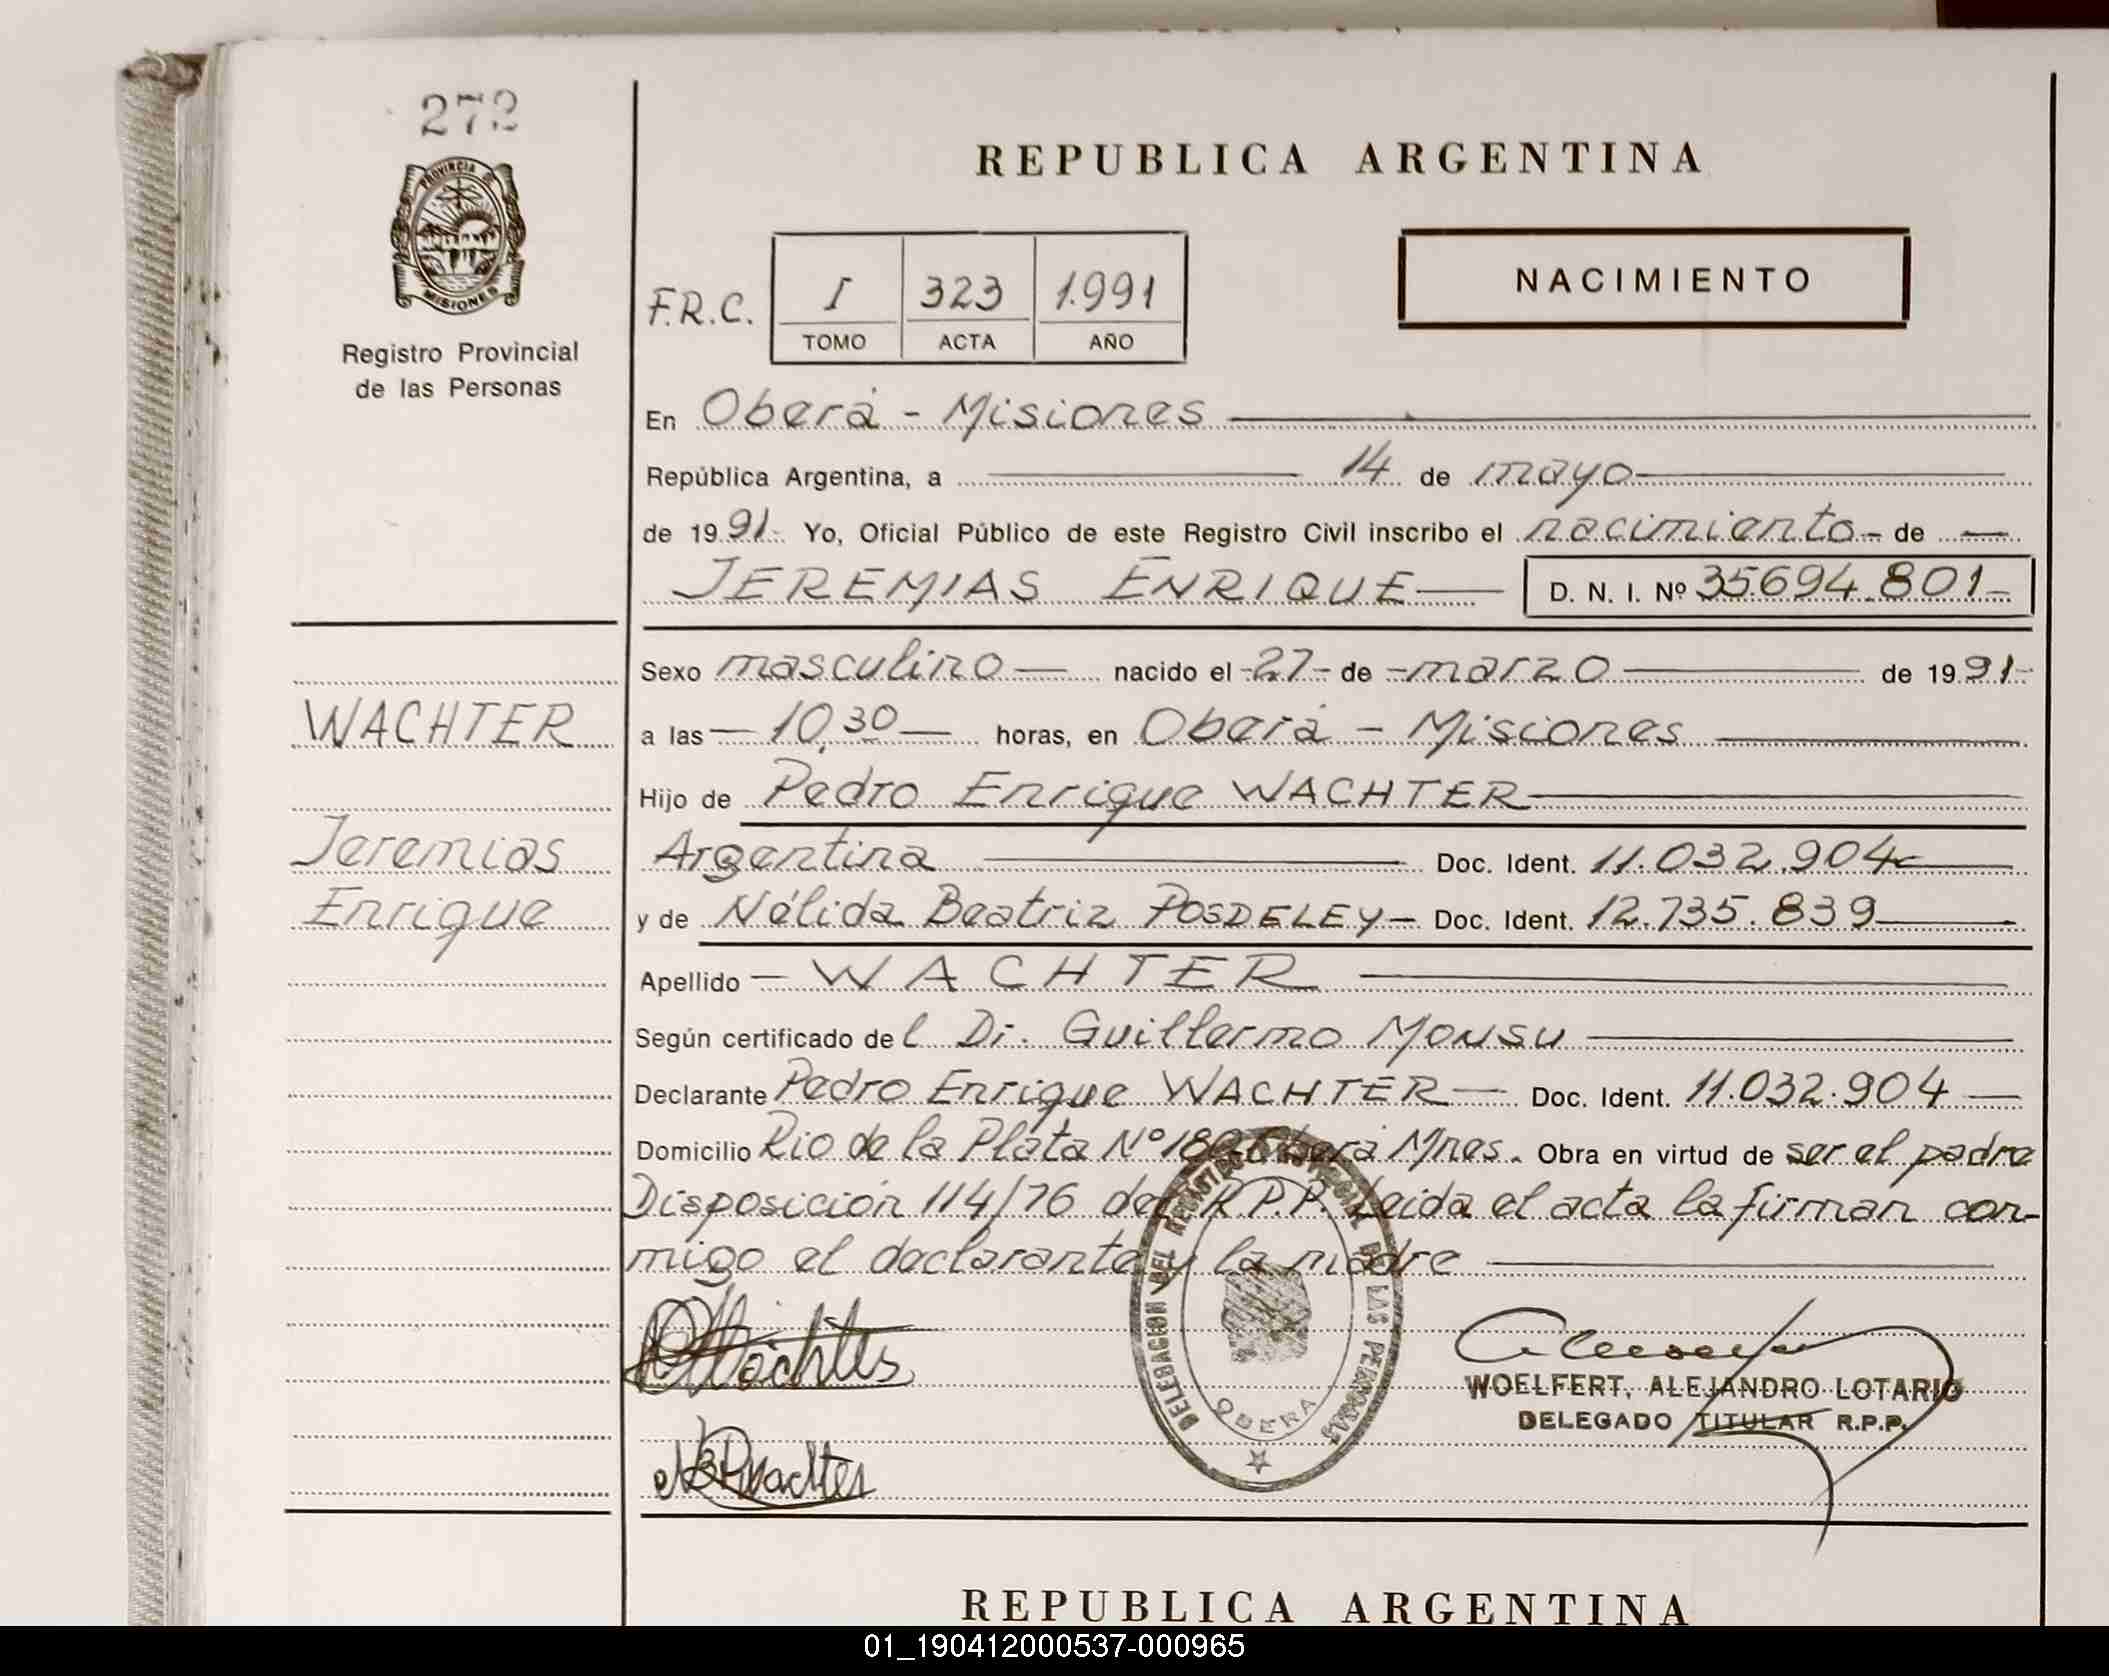 272
PROVINCIA DE
MISIONES
Registro Provincial
de las Personas
WACHTER
Jeremias
Enrique
REPUBLICA ARGENTINA
F.R.C. I 323 1.991
TOMO ACTA AÑO
NACIMIENTO
En Oberá - Misiones
República Argentina, a 14 de mayo
de 1991- Yo, Oficial Público de este Registro Civil inscribo el nacimiento - de
JEREMIAS ENRIQUE D. N. I. Nº 35.694.801-
Sexo masculino nacido el -27- de -marzo de 1991-
a las 10,30 horas, en Oberá - Misiones
Hijo de Pedro Enrique WACHTER
Argentina Doc. Ident. 11.032.904
y de Nélida Beatriz POSDELEY Doc. Ident. 12.735.839
Apellido WACHTER
Según certificado del Dr. Guillermo Mousu
Declarante Pedro Enrique WACHTER Doc. Ident. 11.032.904
Domicilio Rio de la Plata Nº Oberá Mnes. Obra en virtud de ser el padre
Disposición 114/76 del R.P.P. Leida el acta la firman con-
migo el declarante y la madre
DELEGACION DEL REGISTRO PROVINCIAL DE LAS PERSONAS
OBERA
WOELFERT, ALEJANDRO LOTARIO
DELEGADO TITULAR R.P.P.
REPUBLICA ARGENTINA
01_190412000537-000965